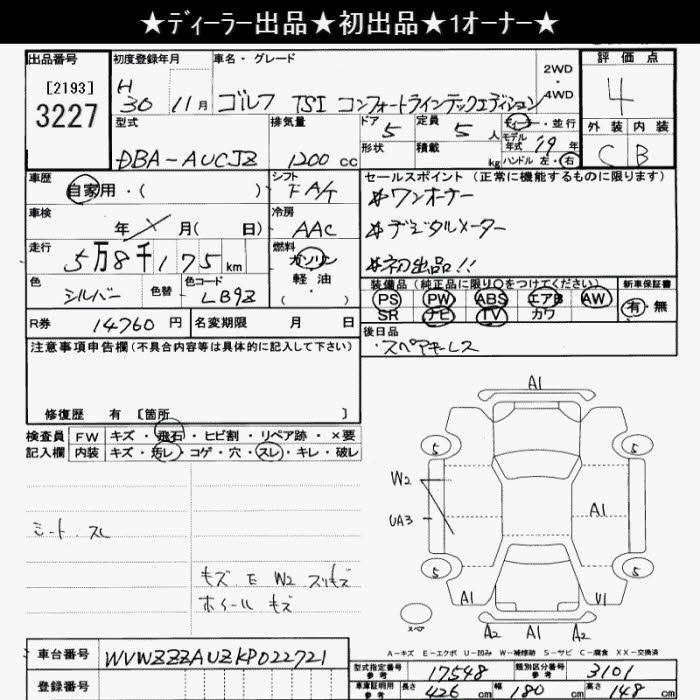 ★ディーラー出品★初出品★1オーナー★
出品番号 初度登録年月 車名・グレード 評価点
[2193] 3227 H30 11月 ゴルフ TSI コンフォートラインテックエディション 2WD・4WD 4
型式 排気量 ドア 5 定員 5人 ディーラー・並行 外装 内装
DBA-AUCJZ 1200cc 形状 積載 kg モデル年式 19年 ハンドル 左・右 C B
車歴 シフト セールスポイント(正常に機能するものに限ります)
自家用・( ) FA/T #ワンオーナー
車検 年 月( 日) 冷房 AAC #デジタルメーター
走行 5万8千175km 燃料 ガソリン 軽・油 ( ) #初出品!!
色 シルバー 色替 色コード LB9Z 装備品(純正品に限り○をつけてください) 新車保証書
PS PW ABS エアB AW 有・無
SR ナビ TV カワ
R券 14760円 名変期限 月 日 後日品
注意事項申告欄(不具合内容等は具体的に記入して下さい) ・スペアキーレス
修復歴 有 [箇所 ]
検査員 FW キズ・飛石・ヒビ割・リペア跡・×要
記入欄 内装 キズ・汚レ・コゲ・穴・スレ・キレ・破レ
A1
5 5
W2
UA3 A1
シート スレ
5 5
キズ E W2 スリキズ
ホイール キズ
A1 V1
スペア
A2 A1 A2
A-キズ E-エクボ U-凹み W-補修跡 S-サビ C-腐食 XX-交換済
車台番号 WVWZZZAUZKP022721
型式指定番号 参考 17548 類別区分番号 参考 3101
登録番号 車庫証明用 参考 長さ 426cm 幅 180cm 高さ 148cm